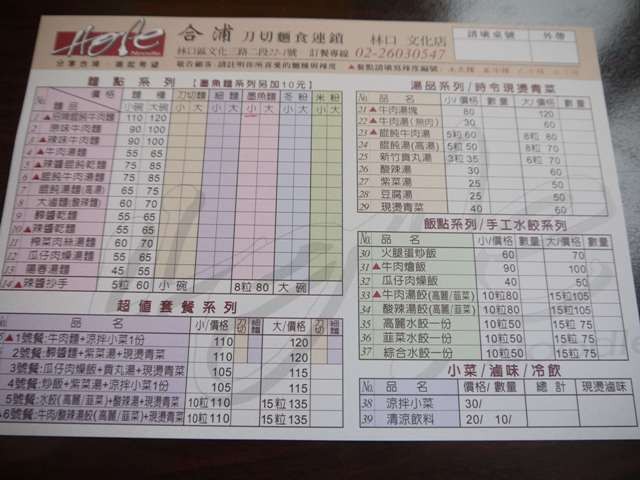 Hope
Noodles
分享台灣‧處處希望
合浦 刀切麵食連鎖 林口 文化店
林口區文化三路二段22-1號 訂餐專線 02-26030547
敬告顧客:請註明你所喜愛的麵條與辣度 ▲餐點請填寫辣度編號:
請填桌號 外帶
麵點系列 【墨魚麵系列另加10元】
No. 價格 麵種 刀切麵 細麵 墨魚麵 冬粉 米粉
麵品 小碗 大碗 小 大 小 大 小 大 小 大 小 大
1 ▲招牌餛飩牛肉麵 110 120
2 原味牛肉麵 90 100
3 ▲辣味牛肉麵 90 100
4 ▲牛肉湯麵 55 65
5 ▲辣醬餛飩乾麵 75 85
6 ▲餛飩牛肉湯麵 75 85
7 餛飩湯麵(高湯) 65 75
8 大滷麵(酸辣麵) 60 70
9 醡醬乾麵 55 65
10 ▲辣醬乾麵 55 65
11 榨菜肉絲湯麵 60 70
12 瓜仔肉燥湯麵 55 65
13 陽春湯麵 45 55
14 ▲辣醬抄手 5粒 60 小碗 8粒 80 大碗
超值套餐系列
No. 品名 小/價格 刀切 細麵 大/價格 刀切 細麵
▲1號餐:牛肉麵+涼拌小菜1份 110 120
2號餐:醡醬麵+紫菜湯+現燙青菜 110 120
3號餐:瓜仔肉燥飯+貢丸湯+現燙青菜 105 115
4號餐:炒飯+紫菜湯+涼拌小菜1份 105 115
5號餐:水餃(高麗/韭菜)+酸辣湯+現燙青菜 10粒 110 15粒 135
▲6號餐:牛肉/酸辣湯餃(高麗/韭菜)+現燙青菜 10粒 110 15粒 135
湯品系列/時令現燙青菜
No. 品名 小/價格 數量 大/價格 數量
21 ▲牛肉湯塊 80 120
22 ▲牛肉湯(無肉) 30 60
23 ▲餛飩牛肉湯 5粒 60 8粒 80
24 餛飩湯(高湯) 5粒 50 8粒 70
25 新竹貢丸湯 3粒 35 6粒 60
26 酸辣湯 30 60
27 紫菜湯 25 50
28 豆腐湯 25 50
29 現燙青菜 40 60
飯點系列/手工水餃系列
No. 品名 小/價格 數量 大/價格 數量
30 火腿蛋炒飯 60 70
31 ▲牛肉燴飯 90 100
32 瓜仔肉燥飯 40 50
33 ▲牛肉湯餃(高麗/韭菜) 10粒80 15粒105
34 酸辣湯餃(高麗/韭菜) 10粒80 15粒105
35 高麗水餃一份 10粒50 15粒 75
36 韭菜水餃一份 10粒50 15粒 75
37 綜合水餃一份 10粒50 15粒 75
小菜/滷味/冷飲
No. 品名 價格/數量 總計 現燙滷味
38 涼拌小菜 30/
39 清涼飲料 20/ 10/